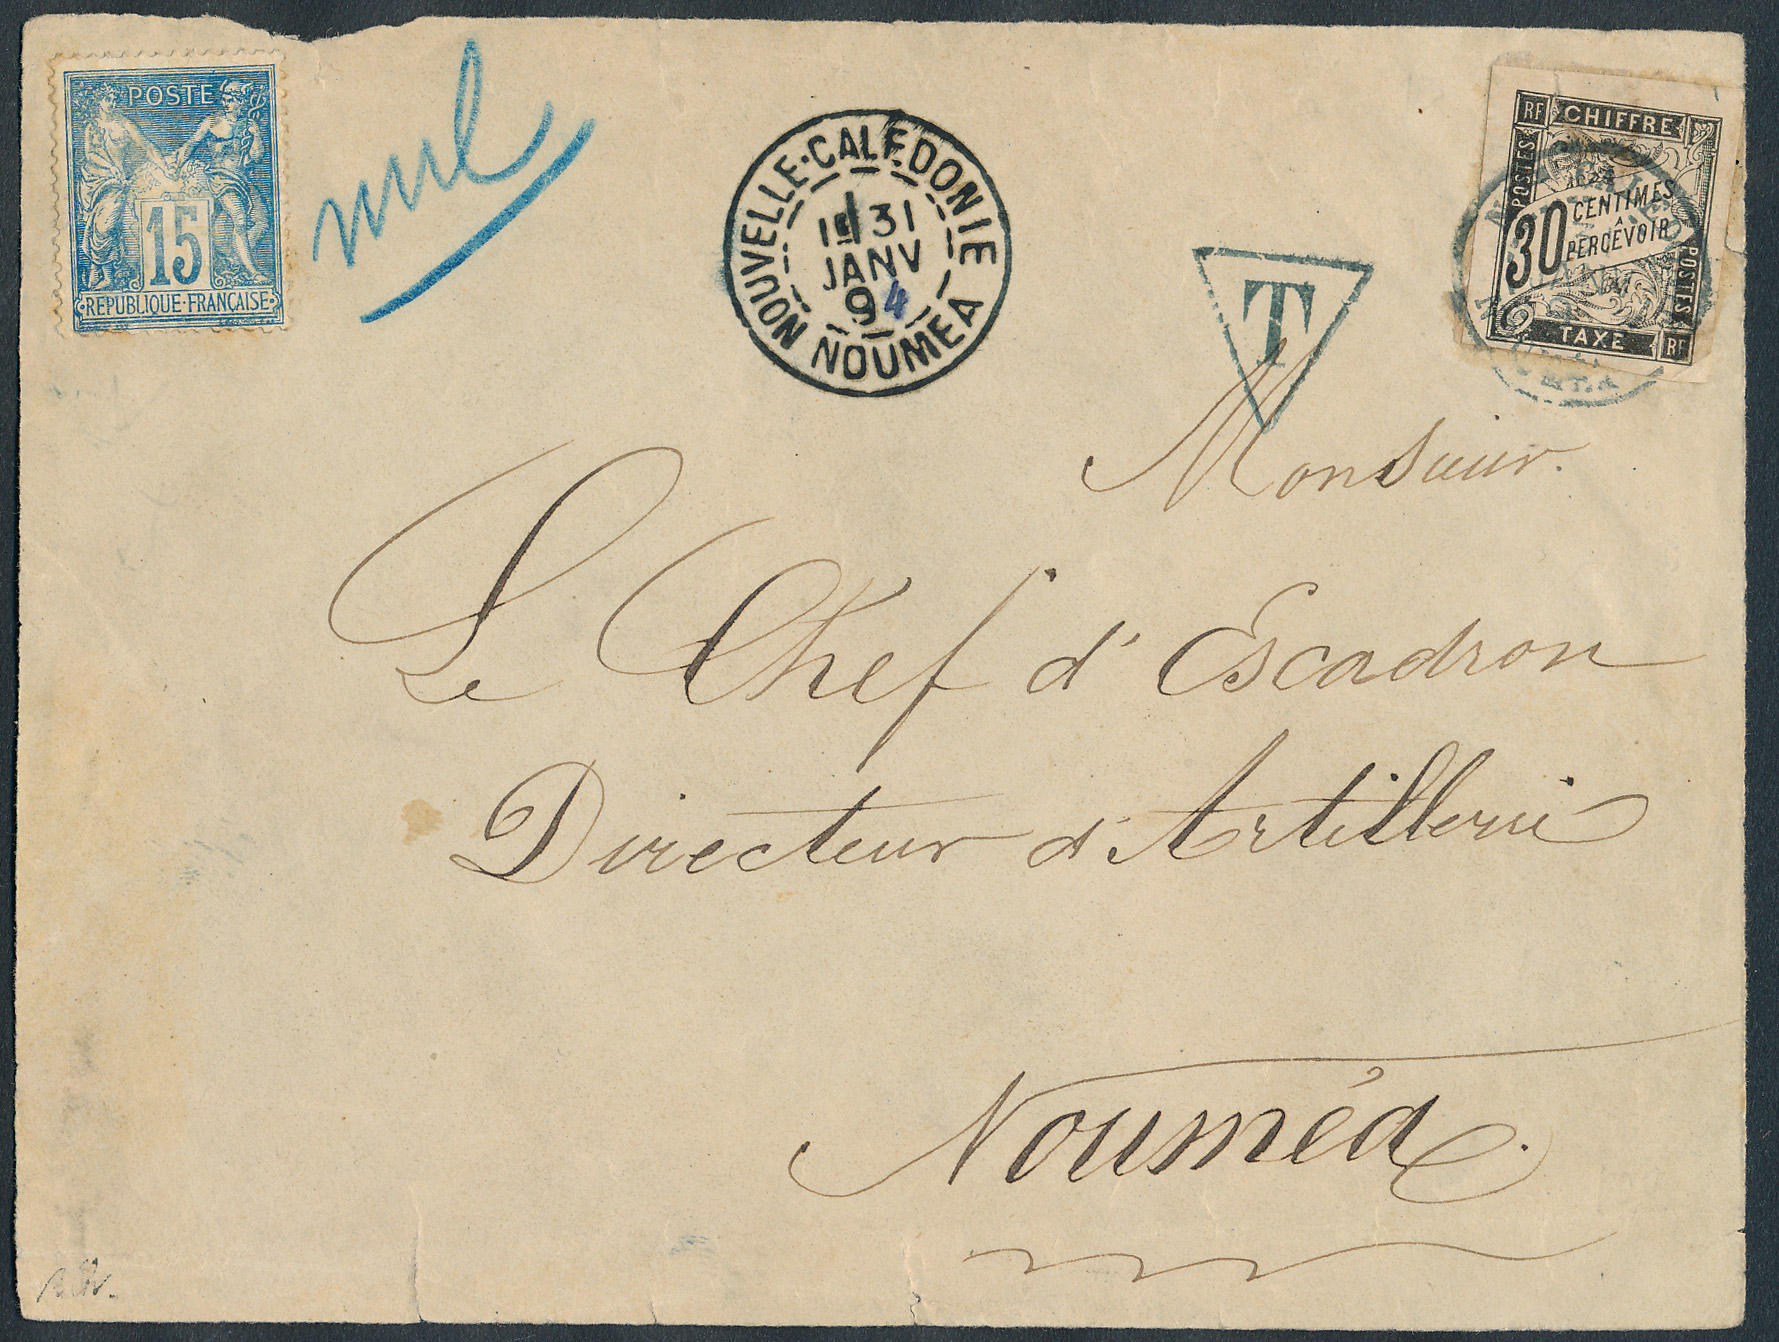 POSTE
15
REPUBLIQUE FRANÇAISE
nul
NOUVELLE-CALÉDONIE
1E 31
JANV
94
NOUMEA
T
RF CHIFFRE
POSTES
30 CENTIMES
À
PERCEVOIR
POSTES
TAXE RF
Monsieur.
Le Chef d'Escadron
Directeur d'Artillerie
Nouméa.